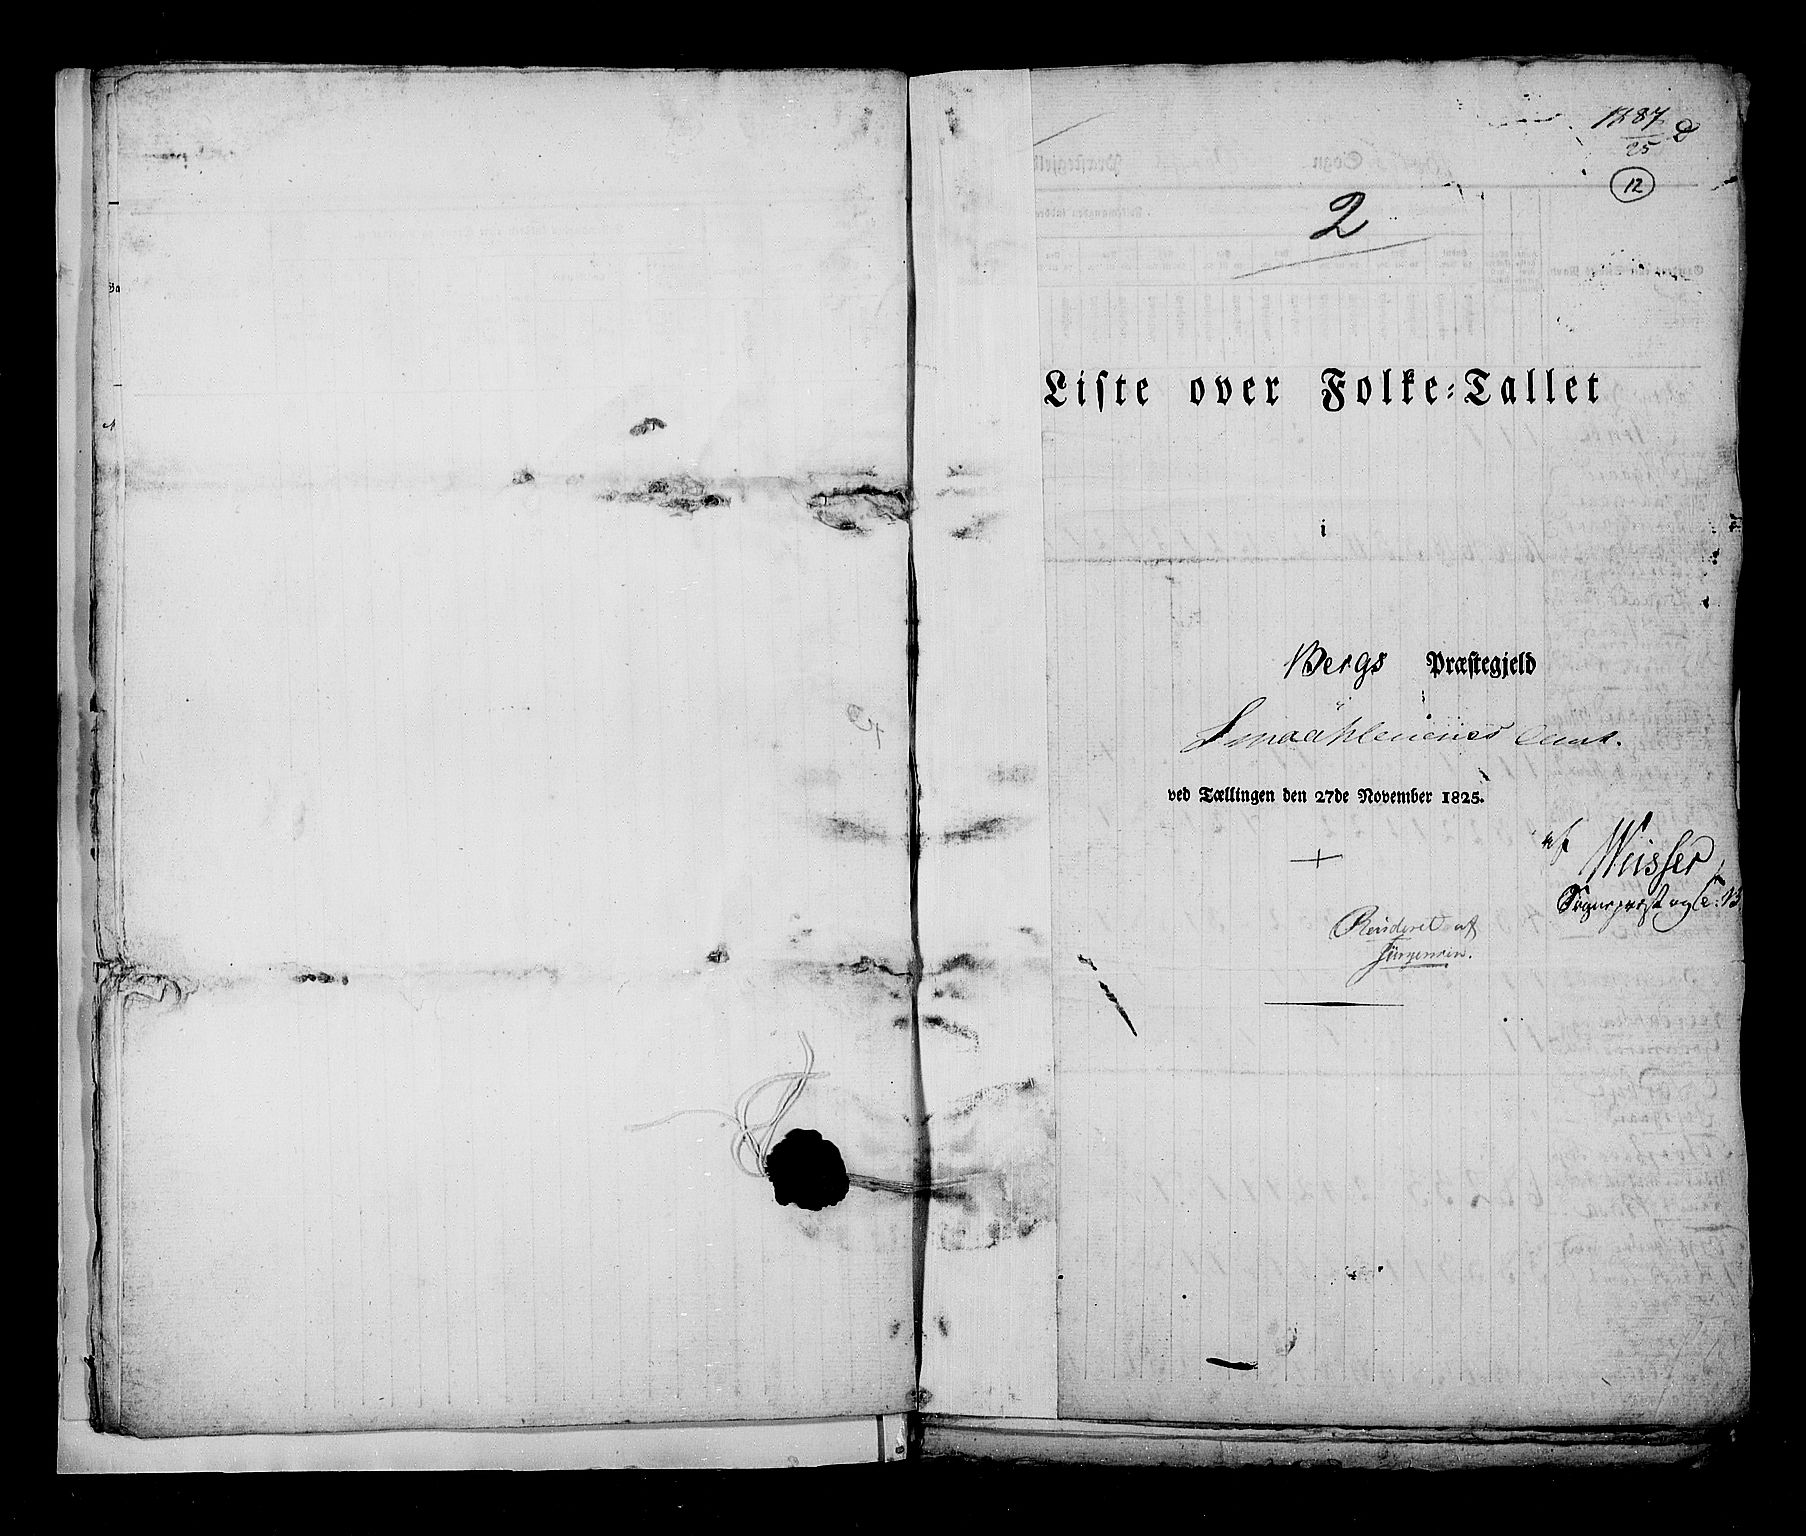 1887 D
25
12
2
Liste over Folke-Tallet
i
Bergs Præstegjeld
Smaahlenenes Amt.
ved Tællingen den 27de November 1825.
af Weisser
Sognepræst og
Revideret af
Jürgensen.